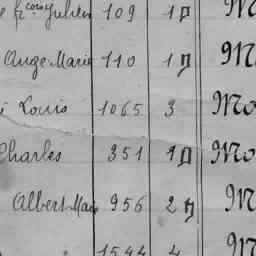 fçois Julien 109 1 M
Ange Marie 110 1 M
Louis 1065 3 Mo
Charles 351 1 Mo
Albert Marie 956 2 M
1544 4 M